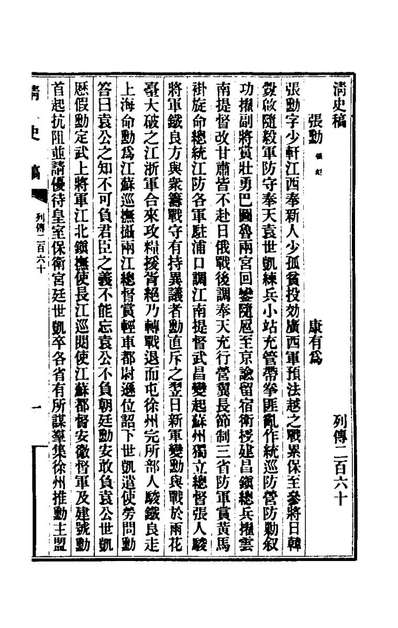 清史稿　列傳二百六十
張勳 康有為
張勳字少軒江西奉新人少孤貧投効廣西軍預法越之戰累保至參將日韓
釁啟隨毅軍防守奉天袁世凱練兵小站充管帶拳匪亂作統巡防營防勦敘
功擢副將賞壯勇巴圖魯兩宮回鑾隨扈至京諭留宿衛授建昌鎮總兵擢雲
南提督改甘肅皆不赴日俄戰後調奉天充行營翼長節制三省防軍賞黃馬
褂旋命總統江防各軍駐浦口調江南提督武昌變起蘇州獨立總督張人駿
將軍鐵良方與衆籌戰守有持異議者勳直斥之翌日新軍變勳與戰於雨花
臺大破之江浙軍合來攻糧援胥絕乃轉戰退而屯徐州完所部人駿鐵良走
上海命勳為江蘇巡撫攝兩江總督賞輕車都尉遜位詔下世凱遣使勞問勳
答曰袁公之知不可負君臣之義不能忘袁公不負朝廷勳安敢負袁公世凱
歷假勳定武上將軍江北鎮撫使長江巡閱使江蘇都督安徽督軍及建號勳
首起抗阻並請優待皇室保衛宮廷世凱卒各省有所謀羣集徐州推勳主盟
清史稿　列傳二百六十　一